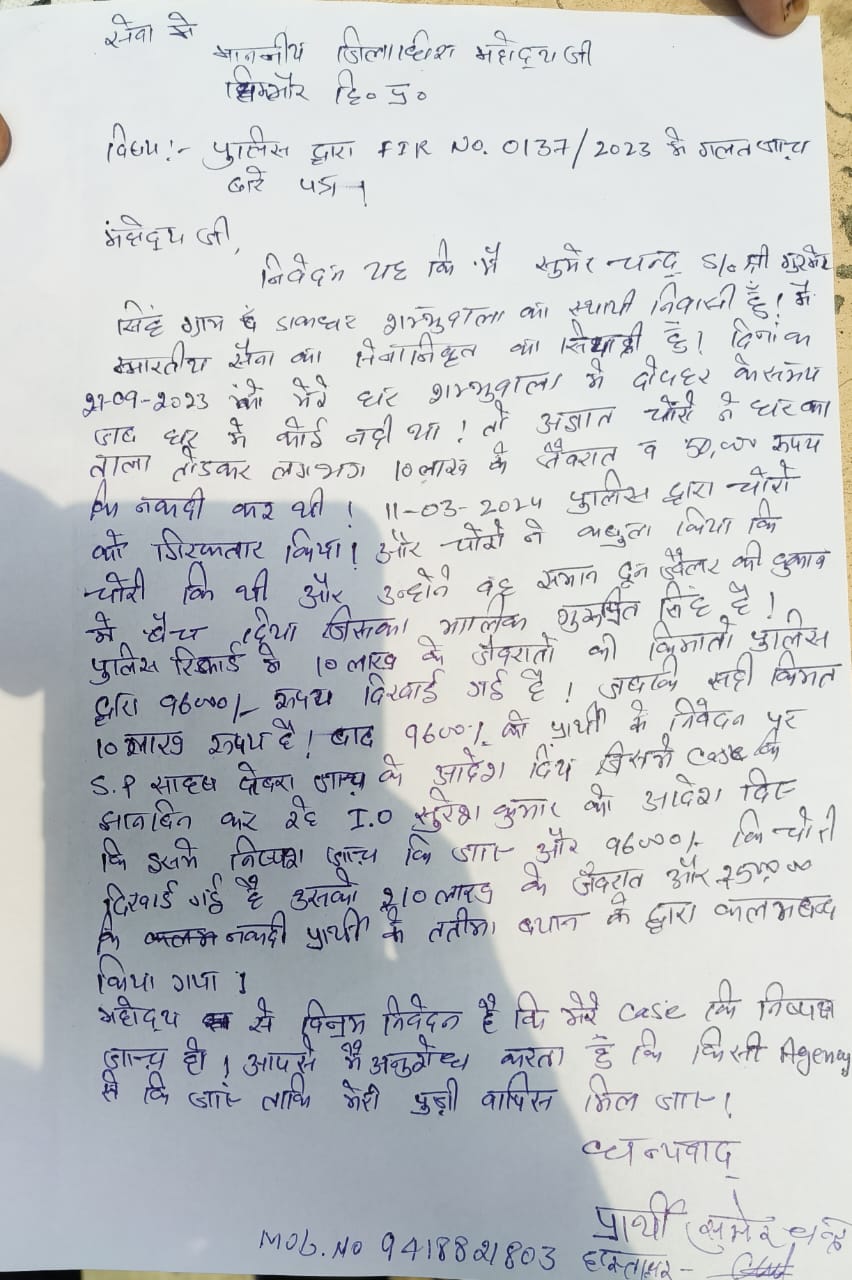 सेवा मे
माननीय जिलाधिश महोदय जी
सिरमौर हि० प्र०
विषय:- पुलिस द्वारा FIR NO. 0137/2023 मे गलत जाच
बारे पत्र।
महोदय जी,
निवेदन यह कि मै सुमेर चन्द S/o श्री गुरमेर
सिंह ग्राम व डाकघर शम्भुवाला का स्थायी निवासी हूँ! मै
भारतीय सेना का सेवानिवृत का सिपाही हूँ! दिनांक
को मेरे घर शम्भुवाला मे दोपहर के समय
जब घर मे कोई नही था! तो अज्ञात चोरो ने घर का
ताला तोडकर लगभग 10 लाख के जेवरात व 50,000 रूपय
कि नकदी कर थी! 11-03-2024 पुलिस द्वारा चोरो
को गिरफतार किया! और चोरो ने कबुला किया कि
चोरी कि थी और उन्होने वह समान दून ज्वैलर की दुकान
मे बैच दिया जिसका मालिक गुरूमित सिंह है!
पुलिस रिकार्ड मे 10 लाख के जेवरातो की किमातो पुलिस
द्वारा 96000/- रूपय दिखाई गई है! जबकि सही किमत
10 लाख रूपय है! बाद 9600/- को प्रार्थी के निवेदन पर
S.P साहब दोबरा जाच के आदेश दिय जिसमे case कि
कर रहे I.O सुरेश कुमार को आदेश दिए
कि इसमे निष्पक्ष जाच कि जाए और 96000/- कि चोरी
दिखाई गई है उसको 10 लाख के जेवरात और
कि नकदी प्रार्थी के ततीमा बयान के द्वारा कलमबध्द
किया गया।
महोदय से विनम्र निवेदन है कि मेरे case कि निष्पक्ष
जाच हो! आपसे मै अनुरोध करता हूँ कि किसी Agency
से कि जाए ताकि मेरी पुंजी वापिस मिल जाए!
धन्यवाद
प्रार्थी सुमेर चन्द
MOb. NO 9418821803 हस्ताक्षर -